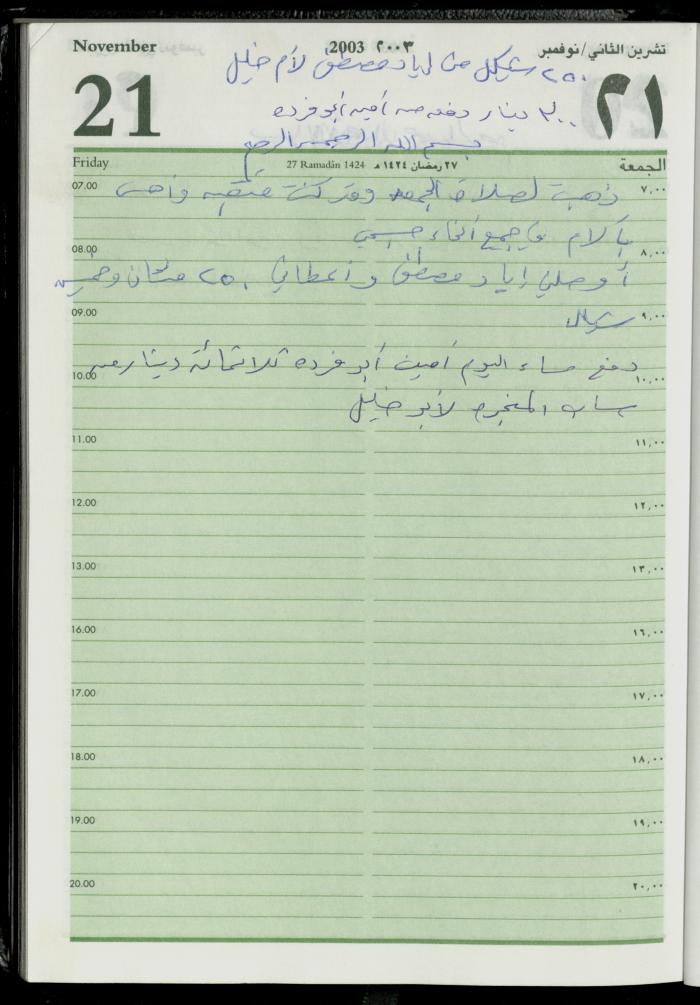 November 2003 ٢٠٠٣ تشرين الثاني/نوفمبر
٢٥٠ شيكل من اياد مصطفى لأم خليل
21 ٢١
٣٠٠ دينار دفعه من أمين أبو فرده
بسم الله الرحمن الرحيم
Friday 27 Ramadân 1424 ٢٧ رمضان ١٤٢٤ هـ الجمعة
07.00 ٧,٠٠
ذهبت لصلاة الجمعه وقد كنت
بالام في جميع أنحاء جسمي
08.00 ٨,٠٠
أوصلني إياد مصطفى وأعطاني ٢٥٠ مئتان وخمسين
09.00 ٩,٠٠
شيكل
دفع مساء اليوم أمين أبو فرده ثلاثمائة دينار من
10.00 ١٠,٠٠
حساب المنجره لأبو خليل
11.00 ١١,٠٠
12.00 ١٢,٠٠
13.00 ١٣,٠٠
16.00 ١٦,٠٠
17.00 ١٧,٠٠
18.00 ١٨,٠٠
19.00 ١٩,٠٠
20.00 ٢٠,٠٠